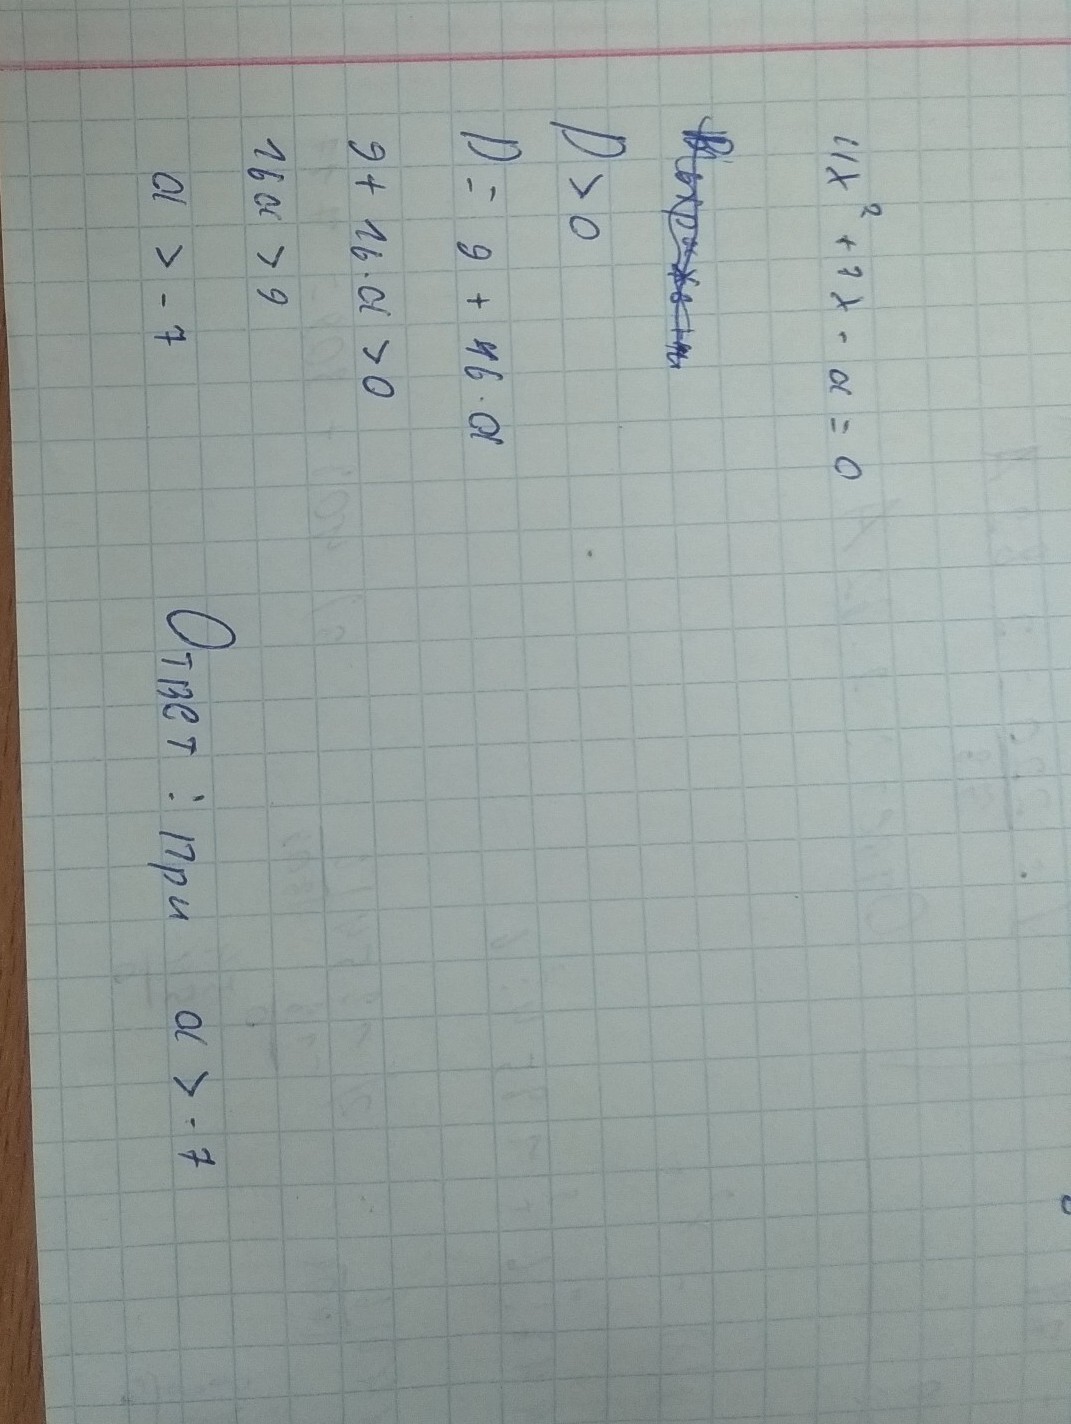 4x² + 3x - a = 0
D > 0
D = 9 + 16 · a
9 + 16 · a > 0
16a > 9
a > - 7
Ответ : при a > - 7